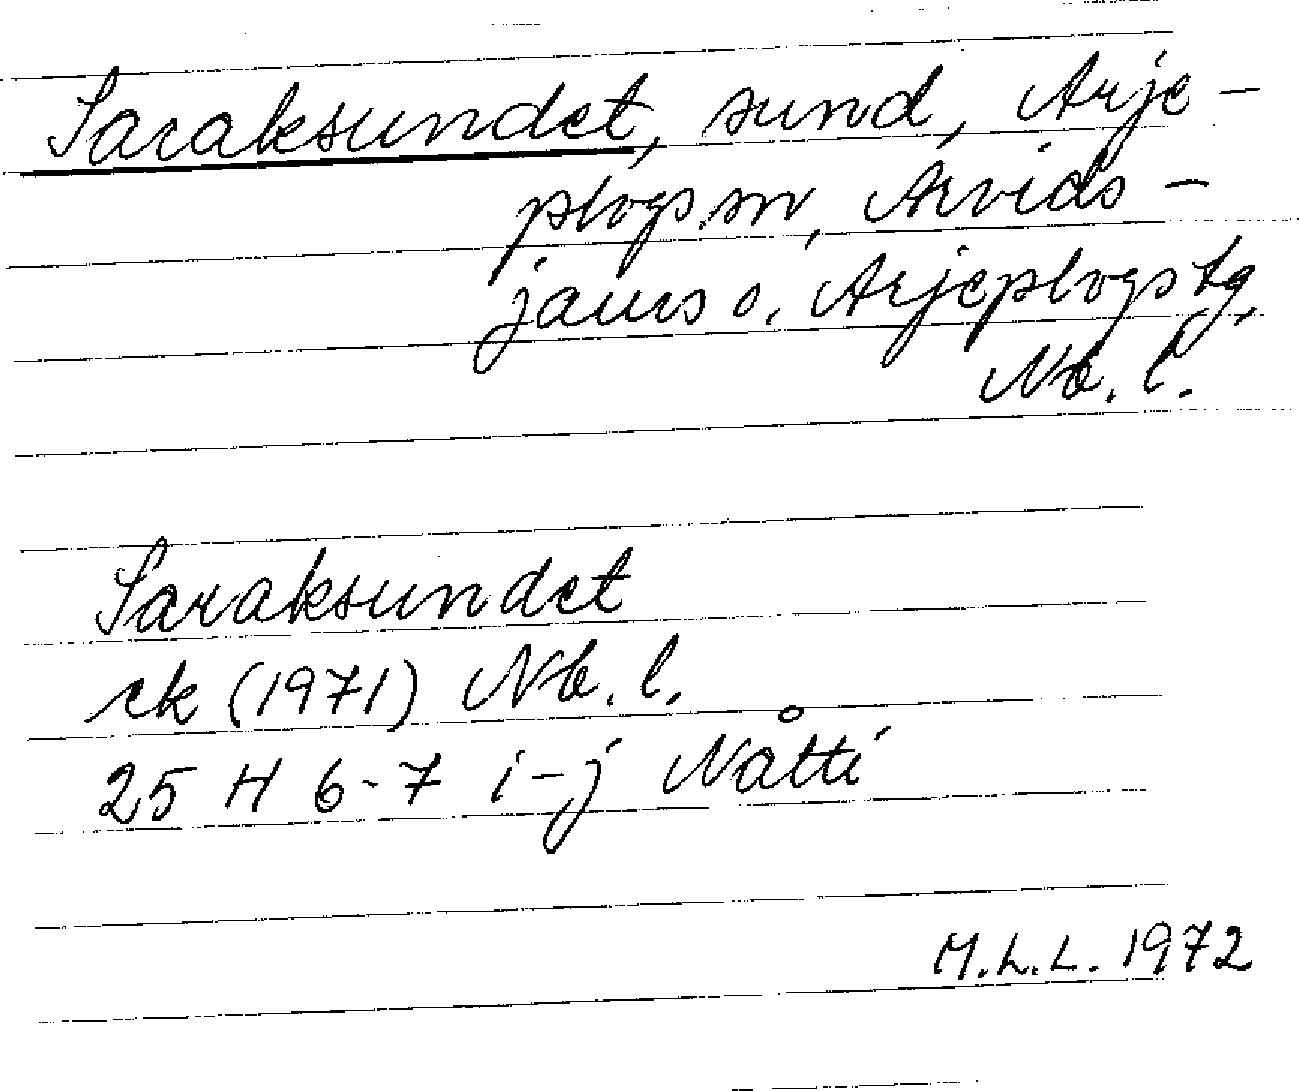 Saraksundet, sund, Arje-
plogs sn, Arvids-
jaurs o. Arjeplogs tg,
Nb. l.
Saraksundet
ek (1971) Nb. l.
25 H 6-7 i-j Nåtti
M.L.L. 1972